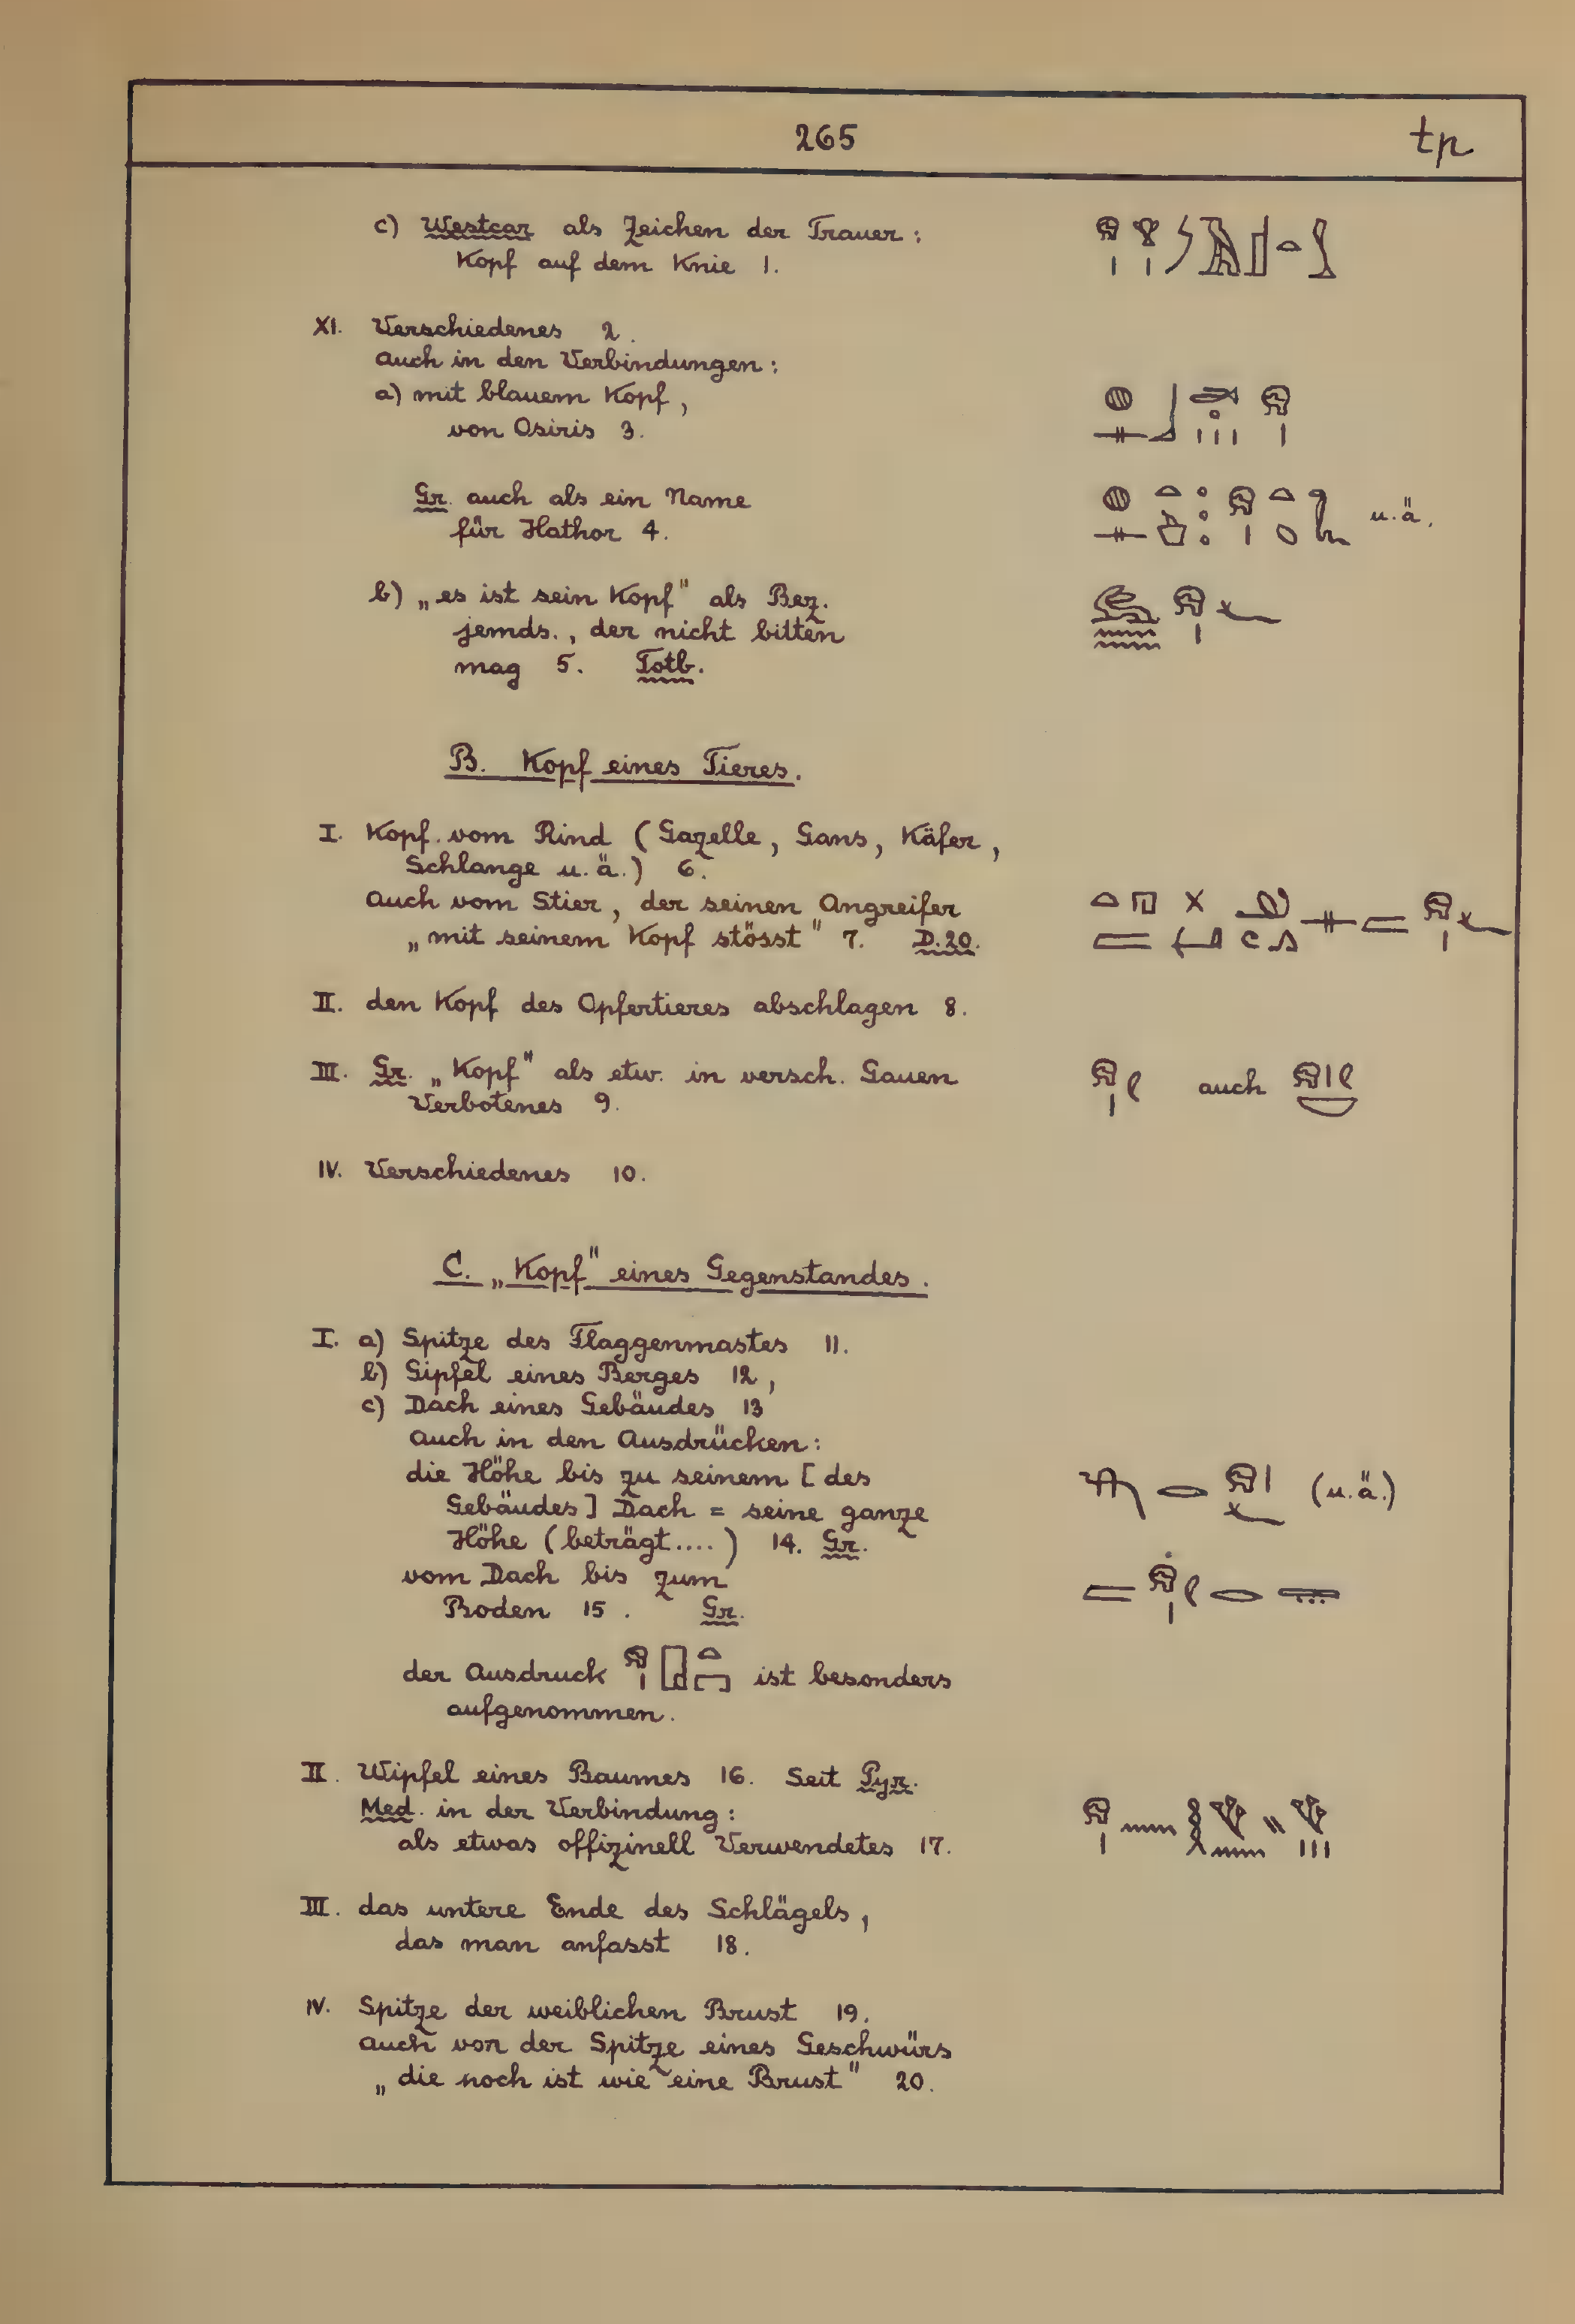 265 tp
c) Westcar als Zeichen der Trauer:
Kopf auf dem Knie 1.
XI. Verschiedenes 2.
auch in den Verbindungen:
a) mit blauem Kopf,
von Osiris 3.
Gr. auch als ein Name
für Hathor 4. u.ä.
b) „es ist sein Kopf" als Bez.
jemds., der nicht bitten
mag 5. Totb.
B. Kopf eines Tieres.
I. Kopf vom Rind (Gazelle, Gans, Käfer,
Schlange u.ä.) 6.
auch vom Stier, der seinen Angreifer
„mit seinem Kopf stösst" 7. D.20.
II. den Kopf des Opfertieres abschlagen 8.
III. Gr. „Kopf" als etw. in versch. Gauen auch
Verbotenes 9.
IV. Verschiedenes 10.
C. „Kopf" eines Gegenstandes.
I. a) Spitze des Flaggenmastes 11.
b) Gipfel eines Berges 12,
c) Dach eines Gebäudes 13
auch in den Ausdrücken:
die Höhe bis zu seinem [des (u.ä.)
Gebäudes] Dach = seine ganze
Höhe (beträgt....) 14. Gr.
vom Dach bis zum
Boden 15. Gr.
der Ausdruck ist besonders
aufgenommen.
II. Wipfel eines Baumes 16. Seit Pyr.
Med. in der Verbindung:
als etwas offizinell Verwendetes 17.
III. das untere Ende des Schlägels,
das man anfasst 18.
IV. Spitze der weiblichen Brust 19.
auch von der Spitze eines Geschwürs
„die noch ist wie eine Brust" 20.